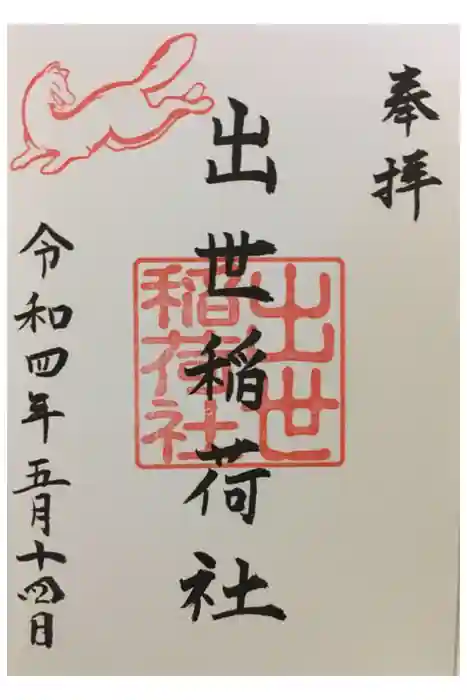 奉拝
出世稲荷社
出世
稲荷社
令和四年五月十四日